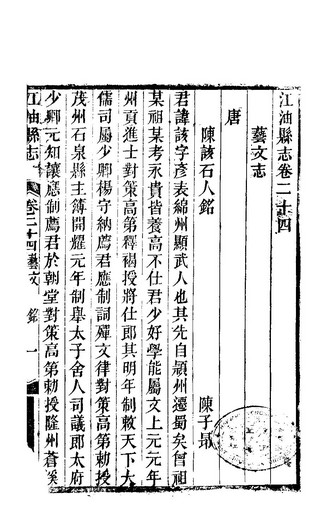 江油縣志卷二十四
藝文志
唐
陳該石人銘 陳子昂
君諱該字彥表綿州顯武人也其先自潁州遷蜀矣曾祖
某祖某考永貴皆養高不仕君少好學能屬文上元元年
州貢進士對策高第釋褐授將仕郎其明年制敕天下大
儒司屬少卿楊守納薦君應制詞殫文律對策高第勅授
茂州石泉縣主簿開耀元年制舉太子舍人司議郎太府
少卿元知讓應制薦君於朝堂對策高第勅授隆州蒼溪
江油縣志 卷二十四藝文 銘 一